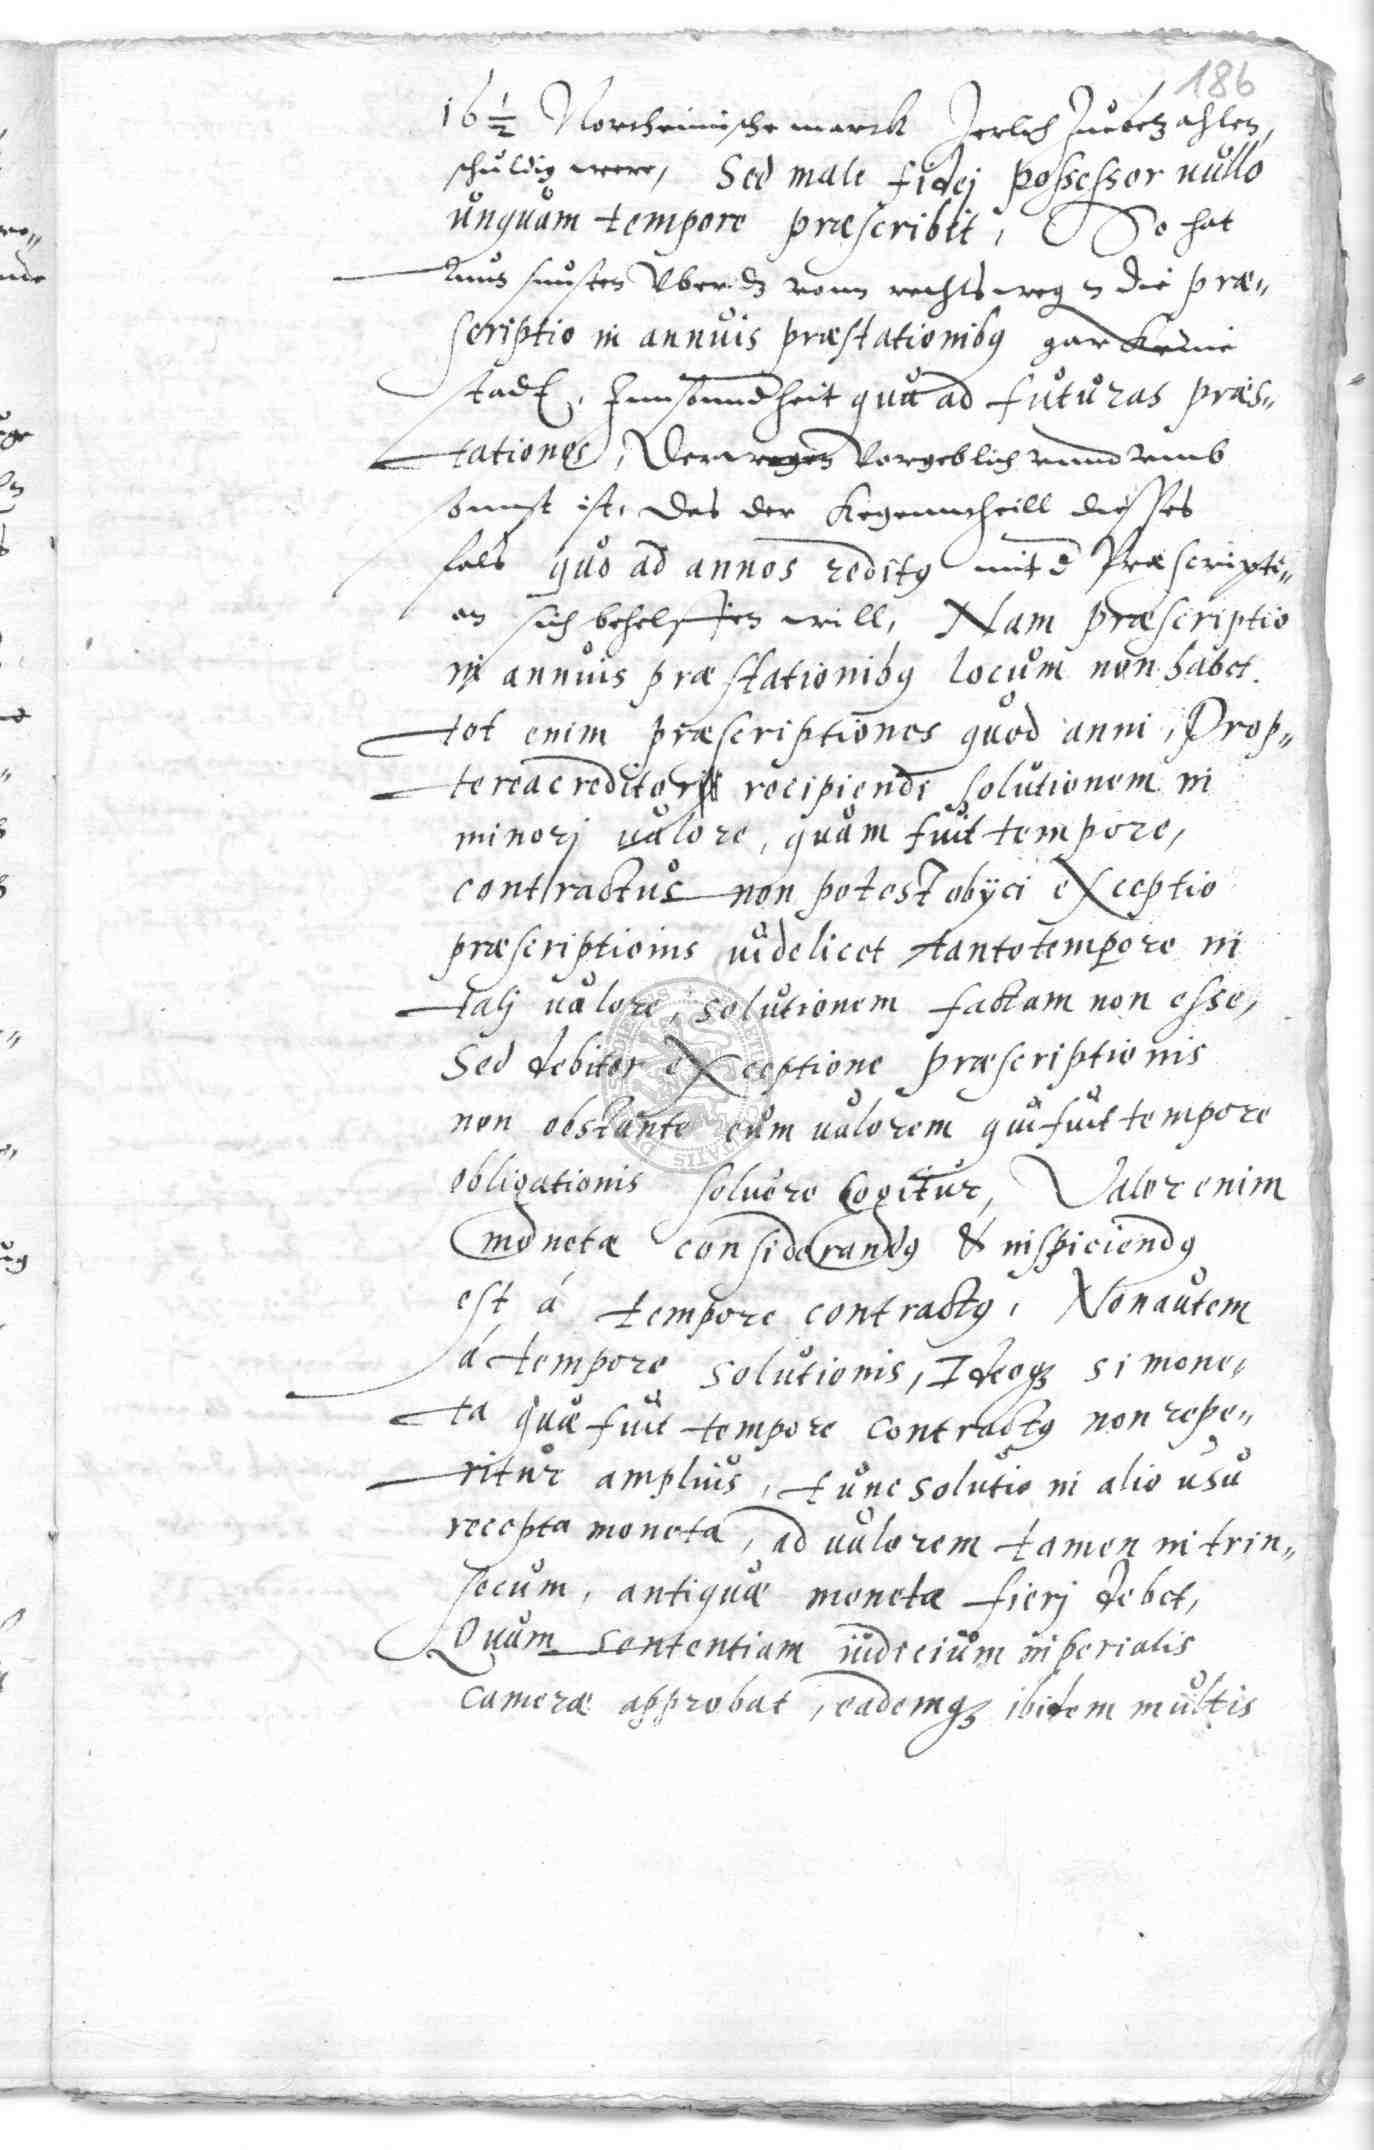 186
16 1/2 Northeimische marck Jerlich Zubetzahlen,
schuldig were, Sed male fidej possessor nůllo
ůnqůam tempore præscribit, So hat
Auch sunsten vber dz vonn rechtswegen die præ„
scriptio in annůis præstationibus gar keine
stadt, Innsonndheit quæ ad fůtůras præs„
tationes, Derwegen vorgeblich vnnd vmb
sonnst ist, das der kegenntheill disses
fals quo ad annos reditus mit d Præscripti„
on sich behelffen will, Nam præscriptio
in annuis præstationibus locům non habet.
tot enim præscriptiones quod anni, Prop„
terea creditori recipiendi solůtionem in
minorj ualore, quam fuit tempore,
contractůs non potest obÿci exceptio
præscriptioins uidelicet tanto tempore in
talj ualore, solůtionem factam non esse,
Sed debitor exceptione præscriptionis
non obstante eům ualorem qui fuit tempore
obligationis soluere cogitur, Valor enim
monetæ considerandus & inspiciendus
est á tempore contractus, Non aůtem
á tempore solůtionis, Ideoq3 si mone„
ta quæ fuit tempore contractus non repe„
ritůr amplius, tůnc solůtio in alio ůsů
recepta moneta, ad ualorem tamen intrin„
secům, antiquæ monetæ fierj debet,
Quam sententiam iůdiciům imperialis
cameræ approbat, eademq3 ibidem můltis